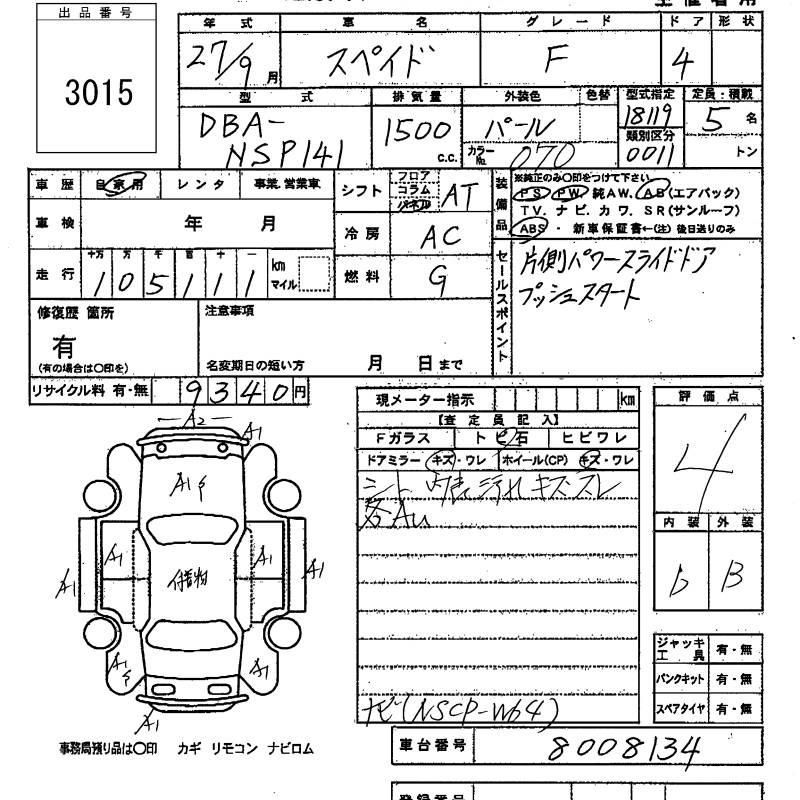 出品番号
3015
年式 車名 グレード ドア 形状
27/9月 スペイド F 4
型式 排気量 外装色 色替 型式指定 定員・積載
DBA-NSP141 1500c.c. パール 18119 5名
カラーNo. 070 類別区分 0011 トン
車歴 自家用 レンタ 事業.営業車 シフト フロア コラム パネル AT
装備品 ※純正のみ〇印をつけて下さい
PS PW 純AW. AB(エアバック)
TV. ナビ. カワ. SR(サンルーフ)
ABS・新車保証書←(注)後日送りのみ
車検 年 月 冷房 AC
走行 十万 万 千 百 十 一 km マイル 燃料 G
105111
セールスポイント 片側パワースライドドア
プッシュスタート
修復歴 箇所 注意事項
有
(有の場合は〇印を) 名変期日の短い方 月 日まで
リサイクル料 有・無 9340円
現メーター指示 km
【査定員記入】
Fガラス トビ石 ヒビワレ
ドアミラー キズ・ワレ ホイール(CP) キズ・ワレ
シート 内装 汚れ キズ スレ
各Au
ナビ(NSCP-W64)
評価点
4
内装 外装
B
ジャッキ 工具 有・無
パンクキット 有・無
スペアタイヤ 有・無
A2
A1
A1
A1 A1 A1 A1
A1
A1
A1
事務局残り品は〇印 カギ リモコン ナビロム
車台番号 8008134